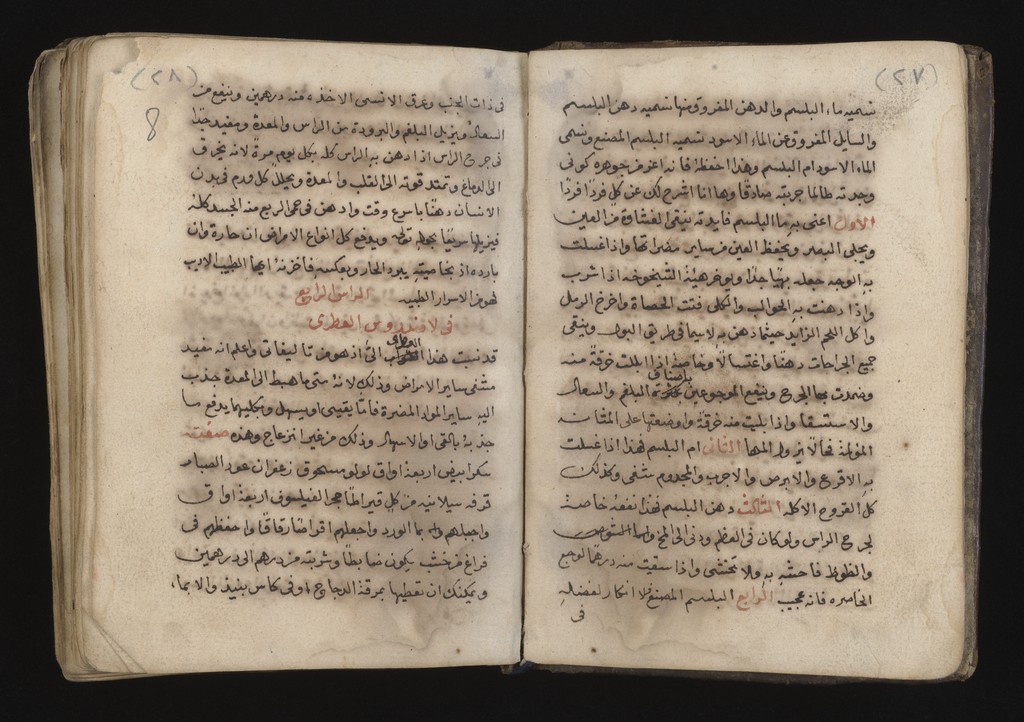 (٢٧)
تسميه ماء البلسم والدهن المفروق منها تسميه دهن البلسم
والسايل المفروق عن الماء الاسود تسميه البلسم المصنع وتسمى
الماء الاسود ام البلسم وهذا احفظه فانه اعز من جوهره كونى
وجدته طالما جربته صادقا وها انا اشرح لك عن كل فردًا فردًا
الاول اعنى به ما البلسم فايدته ينقى الغشاوة من العين
ويجلى البصر ويحفظ العين من ساير مضراتها واذا غسلت
به الوجه جعله بهيًا جدًا ويوخر هيئة الشيخوخه اذا شرب
واذا دهنت به الحوالب والكلى فتت الحصاة واخرج الرمل
واكل اللحم الزايد حيثما دهن به لا سيما فى طريق البول وينقى
جميع الجراحات دهنًا واغتسالًا وخاصة اذا ابللت خرقة منه
وضمدت بها الجرح وينفع الموجوعين البلغم والسعال
والاستسقا واذا بليت منه خرقة ووضعتها على المثانه
المؤلمة فحالًا يزول المها الثانى ام البلسم فهذا اذا غسلت
به الاقرع والابرص والاجرب والمجدوم شفى وكذلك
كل القروح الاكله الثالث دهن البلسم فهذا نفعه خاصة
لجرح الراس ولو كان فى العظم ودنى الى المخ واما
فاحقنه به ولا تخشى واذا سقيت منه درهمًا لوجع
الخاصره فانه عجيب الرابع البلسم المصنع فلا انكار لفضله
فى
(٢٨)
8
فى ذات الجنب وعرق الانسى الاخذه منه درهمين وينفع من
السعال ويزيل البلغم والبرودة من الراس والمعدة ومفيد جدًا
فى جرح الراس اذا ادهن به الراس كله بكل يوم مرة لانه يخرق
الى الدماغ وتمتد قوته الى القلب والمعدة ويحلل كل ورم فى بدن
الانسان دهنًا باسرع وقت وادهن فى حمى الربع منه الجسد كله
فيزيلها سريعًا بجملة قوته ويدفع كل انواع الامراض ان حارة وان
بارده اذ بخاصيته يبرد الحار وبعكسه فاخزنه ايها الطبيب الاديب
فهو من الاسرار الطبيه الراس الرابع
فى لافندروس العطرى
قد نسبت هذا الىّ اذ هو من تاليفاتى واعلم انه مفيد
مشفى ساير الامراض وذلك لانه متى ما هبط الى المعدة جذب
اليه ساير المواد المضرة فاما يقيى او يسهل وبكليهما يدفع ما
جذبه بالقى او الاسهال وذلك من غير انزعاج وهذه صفته
سكر ابيض اربعة اواق لولو مسحوق زعفران عود الصبار
قرفه سيلانيه من كل قيراط الفيلسوف اربعة اواق
واجبلهم بما الورد واجعلهم اقراصًا رقاقًا واحفظهم فى
فراغ من خشب يكون ضابطًا وشربته من درهم الى درهمين
ويمكنك ان تعطيها بمرقة الدجاج او فى كاس بنبيذ والا بماء